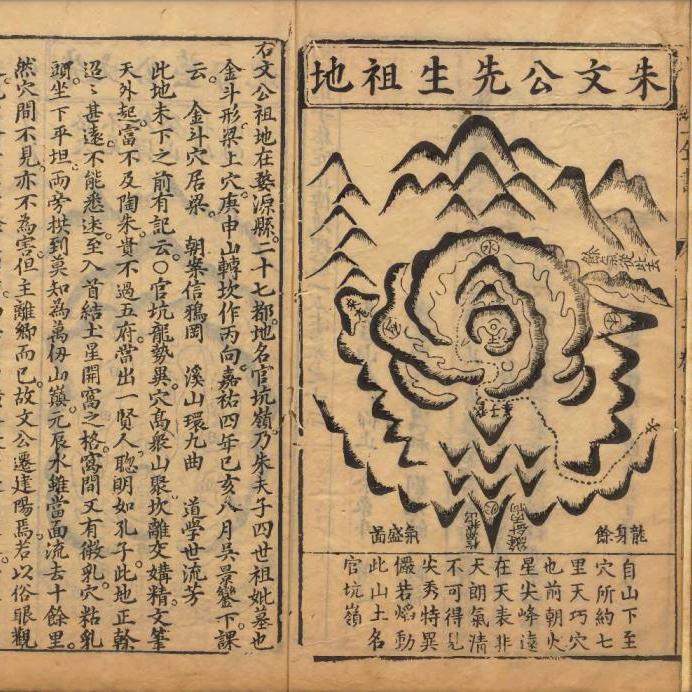 朱文公先生祖地
水
金
木
火
餘氣從此去
龍身餘
氣盛圖
自山下至
穴所約七
里天巧穴
也前朝火
星尖峰遠
在天表非
天朗氣清
不可得見
尖秀特異
儼若熖動
此山土名
官坑嶺
右文公祖地在婺源縣二十七都地名官坑嶺乃朱夫子四世祖妣墓也
金斗形梁上穴庚申山轉坎作丙向嘉祐四年己亥八月吳景鸞下課
云 金斗穴居梁 朝案信鴉岡 溪山環九曲 道學世流芳
此地未下之前有記云○官坑龍勢異穴高衆山聚坎離交媾精文筆
天外起富不及陶朱貴不過五府當出一賢人聰明如孔子此地正榦
迢〻甚遠不能悉述至入首結土星開窩之格窩間又有微乳穴粘乳
頭坐下平坦兩旁拱到莫知為萬仞山巔元辰水雖當面流去十餘里
然穴間不見亦不為害但主離鄉而已故文公遷建陽焉若以俗眼觀